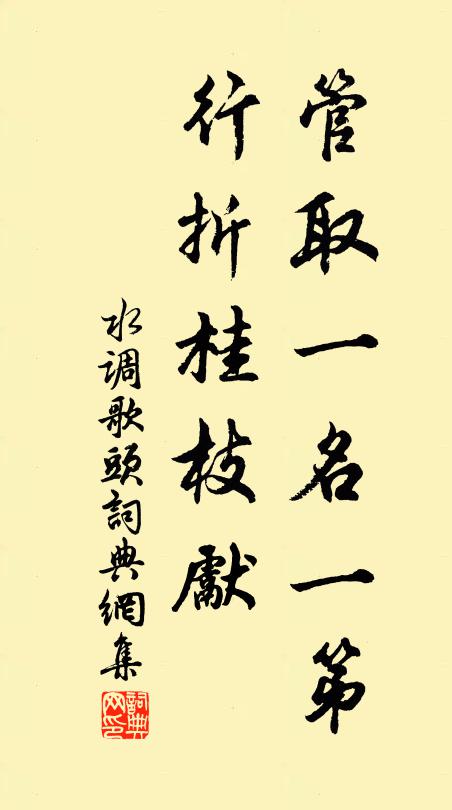 管取一名一第
行折桂枝獻
水调歌頭詞典網集
詞典
网印